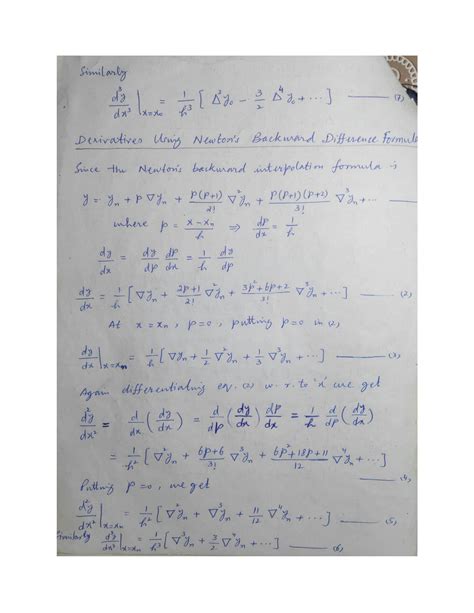 Similarly
d³y/dx³ |x=x₀ = 1/h³ [ Δ³y₀ − 3/2 Δ⁴y₀ + ⋯ ] —— (7)
Derivatives Using Newton's Backward Difference Formula
Since the Newton's backward interpolation formula is
y = yₙ + p ∇yₙ + p(p+1)/2! ∇²yₙ + p(p+1)(p+2)/3! ∇³yₙ + ⋯
where p = x−xₙ/h ⇒ dp/dx = 1/h
dy/dx = dy/dp dp/dx = 1/h dy/dp
dy/dx = 1/h [ ∇yₙ + 2p+1/2! ∇²yₙ + 3p²+6p+2/3! ∇³yₙ + ⋯ ] —— (2)
At x = xₙ, p=0, putting p=0 in (2),
dy/dx |x=xₙ = 1/h [ ∇yₙ + 1/2 ∇²yₙ + 1/3 ∇³yₙ + ⋯ ] —— (3)
Again differentiating eq. (2) w. r. to 'x' we get
d²y/dx² = d/dx (dy/dx) = d/dp (dy/dx) dp/dx = 1/h d/dp (dy/dx)
= 1/h² [ ∇²yₙ + 6p+6/3! ∇³yₙ + 6p²+18p+11/12 ∇⁴yₙ + ⋯ ] —— (4)
Putting p=0, we get
d²y/dx² |x=xₙ = 1/h² [ ∇²yₙ + ∇³yₙ + 11/12 ∇⁴yₙ + ⋯ ] —— (5)
Similarly d³y/dx³ |x=xₙ = 1/h³ [ ∇³yₙ + 3/2 ∇⁴yₙ + ⋯ ] —— (6)